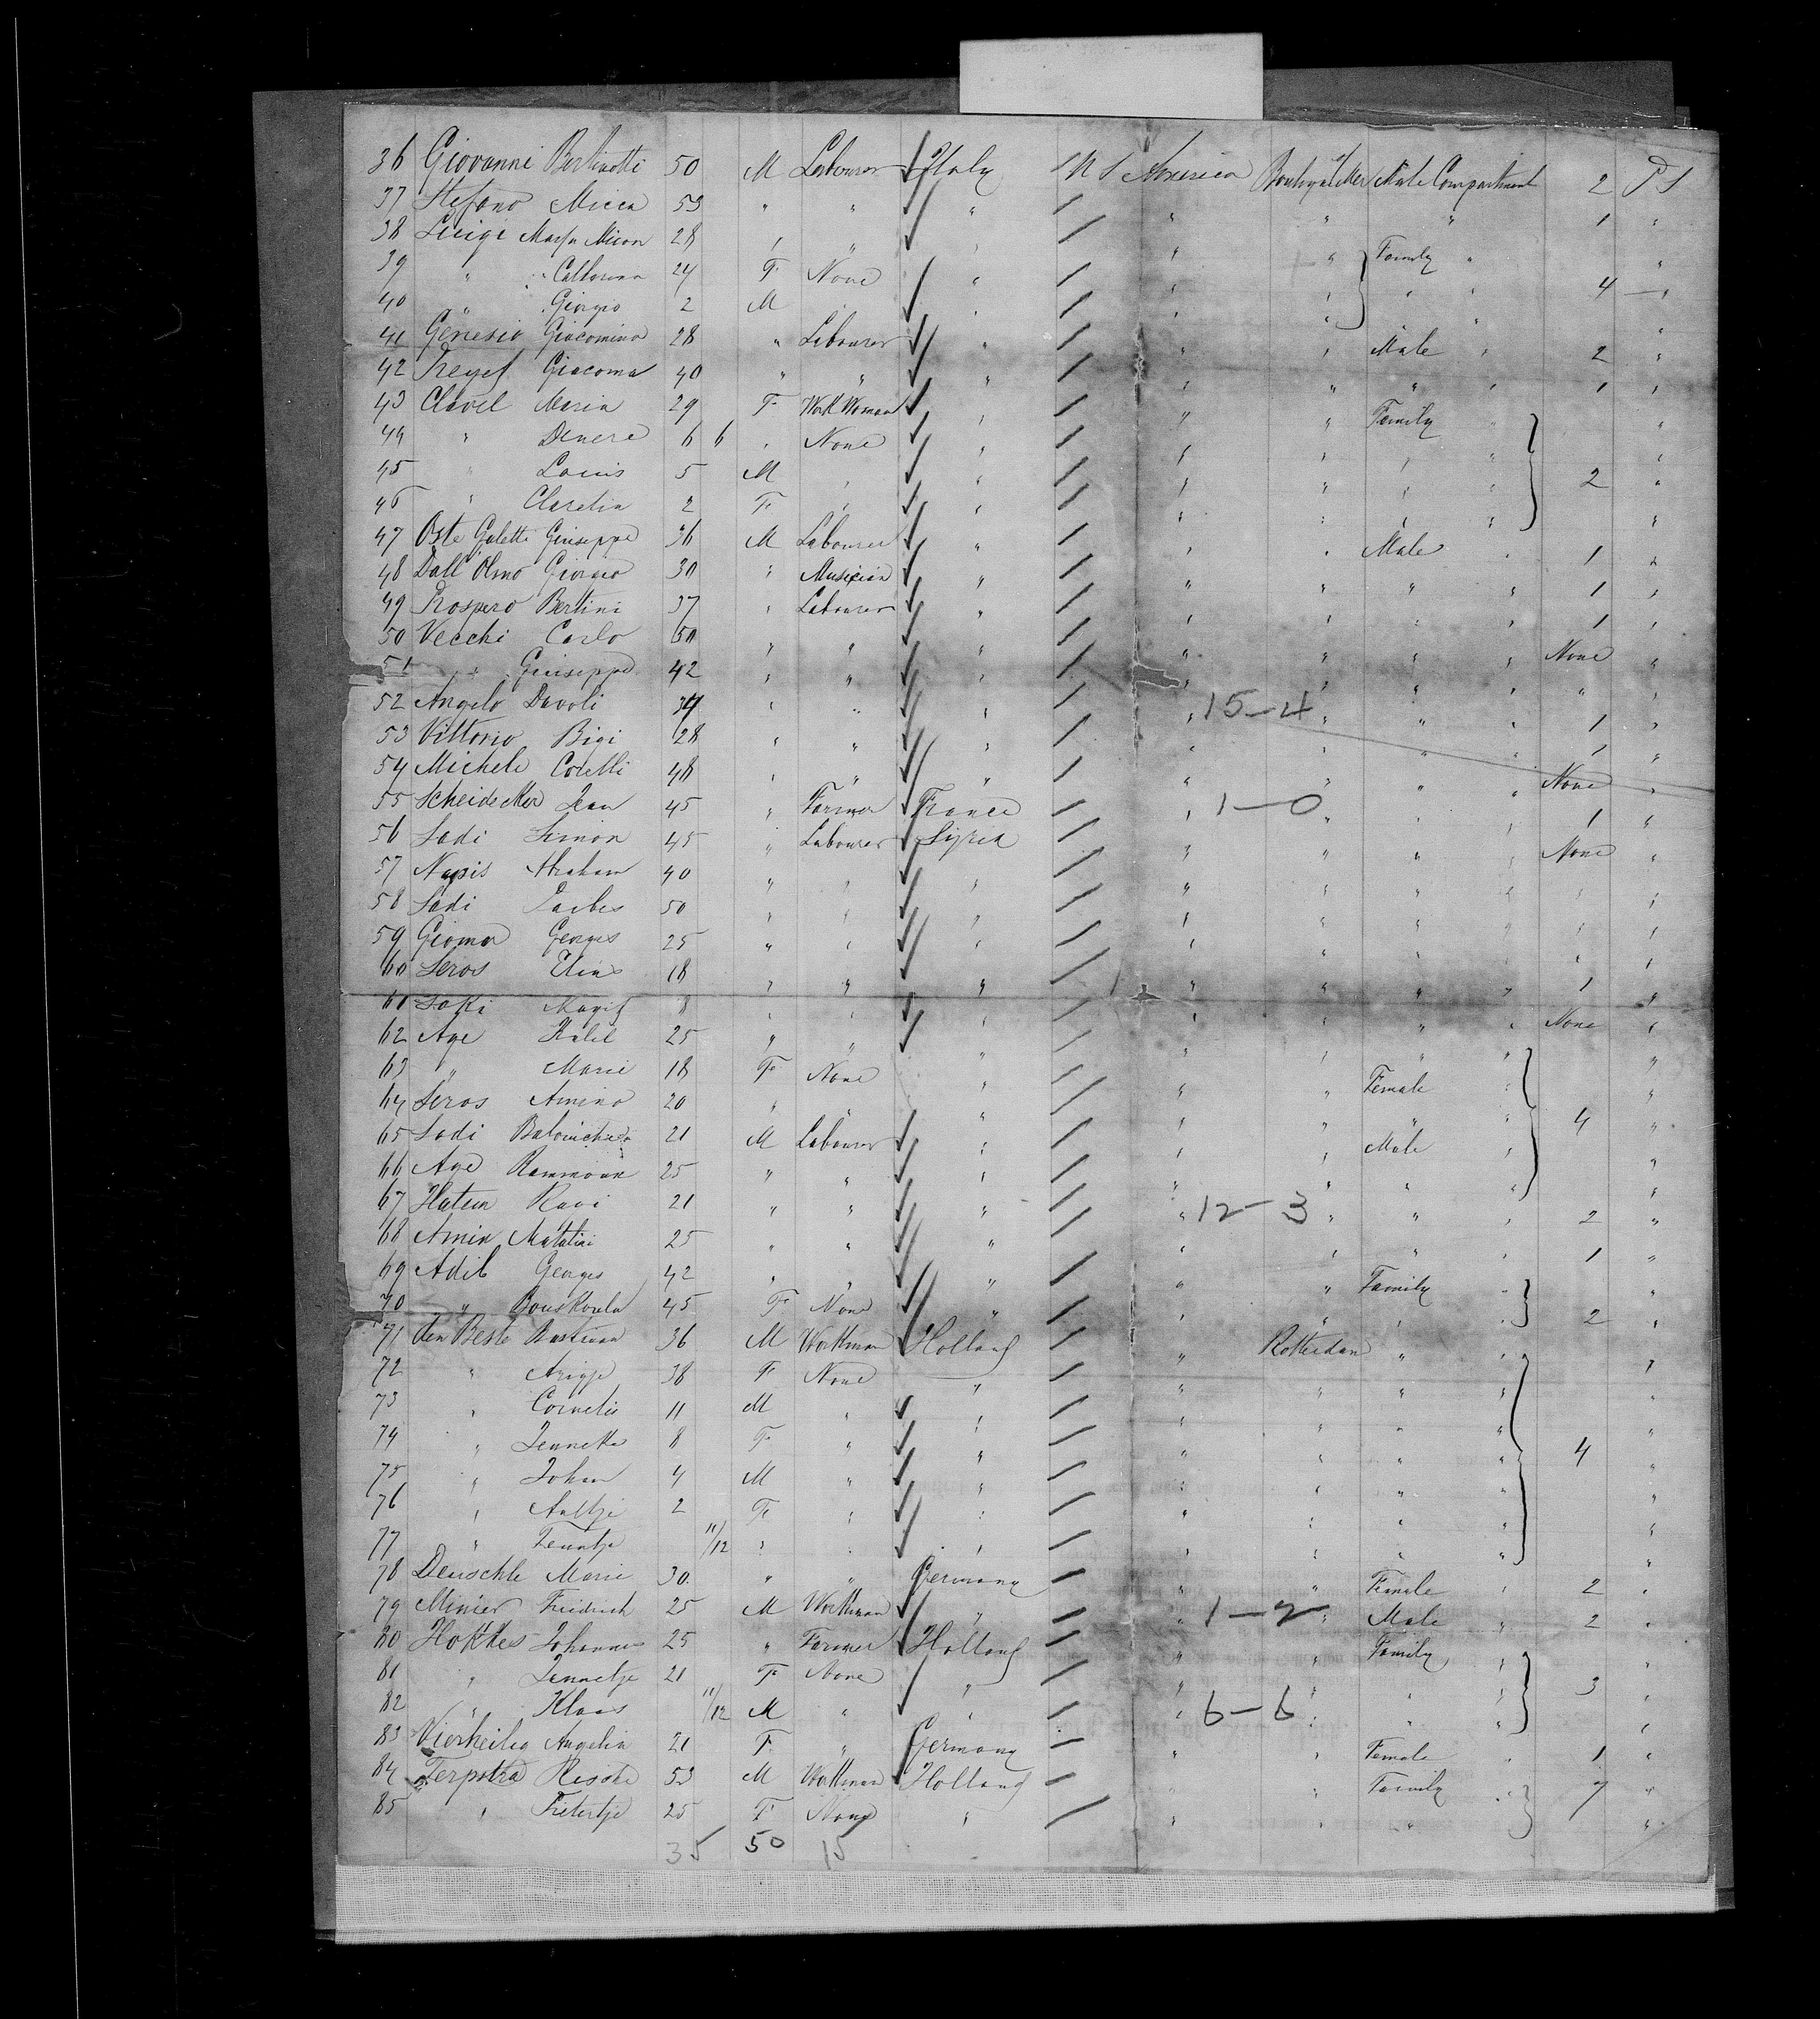 36 Giovanni Bertinotti 50 M Labourer Italy U S America Boulogne s/Mer Male Compartment 2 P S
37 Stefano Micca 53 " " " " " " 1 "
38 Luigi Micon 28 " " " " " Family " "
39 " Catterina 24 F None " " " " " 4 "
40 " Giorgio 2 M " " " " "
41 Genesio Giacomino 28 " Labourer " " " Male " 2 "
42 Giacomo 40 " " " " " " " 1 "
43 Clavel Maria 29 F Work Woman " " " Family " "
44 " 6 6 " None " " " " " "
45 " Louis 5 M " " " " " " 2 "
46 " Claretia 2 F " " " " " " "
47 Oste Galetti Giuseppe 36 M Labourer " " " Male " 1 "
48 Dall'Olmo Giorgio 30 " Musician " " " " " 1 "
49 Prospero Bertini 37 " Labourer " " " " " 1 "
50 Vecchi Carlo 50 " " " " " " " None "
51 " Giuseppe 42 " " " " " " " " "
52 Angelo Davoli 34 " " " " 15-4 " " " 1 "
53 Vittorio Bigi 28 " " " " " " " 1 "
54 Michele Corelli 48 " " " " " " " None "
55 Scheidecker Jean 45 " Farmer France " 1-0 " " " 1 "
56 Sadi Simon 45 " Labourer Syria " " " " None "
57 Abraham 40 " " " " " " " " "
58 Sadi 50 " " " " " " " " "
59 Georges 25 " " " " " " " " "
60 Seros Elias 18 " " " " " " " 1 "
61 8 " " " " " " " None "
62 Age Kalil 25 " " " " " " " "
63 " Marie 18 F None " " " Female " "
64 Seros Amino 20 " " " " " " " 4 "
65 Sadi 21 M Labourer " " " Male " "
66 Age 25 " " " " " " " "
67 Hatem 21 " " " " 12-3 " " " 2 "
68 Amin 25 " " " " " " " 1 "
69 Adib Georges 42 " " " " " Family " "
70 " 45 F None " " " " " 2 "
71 den Beste Bastiaan 36 M Workman Holland " Rotterdam " " "
72 " Arigje 38 F None " " " " " "
73 " Cornelis 11 M " " " " " " "
74 " Jennetta 8 F " " " " " " 4 "
75 " Johan 4 M " " " " " " "
76 " Aaltje 2 F " " " " " " "
77 " Teuntje 11/12 " " " " " " " "
78 Deuschle Marie 30 " " Germany " " Female " 2 "
79 Minier Friedrich 25 M Workman " " 1-2 " Male " 2 "
80 Hoktes Johannes 25 " Farmer Holland " " Family " "
81 " Jennetje 21 F None " " " " " 3 "
82 " Klaas 11/12 M " " " 6-6 " " " "
83 Vierheilig Angelia 21 F " Germany " " Female " 1 "
84 Terpstra 53 M Workman Holland " " Family " 7 "
85 " Pietertje 25 F None " " " " " "
35 50 15